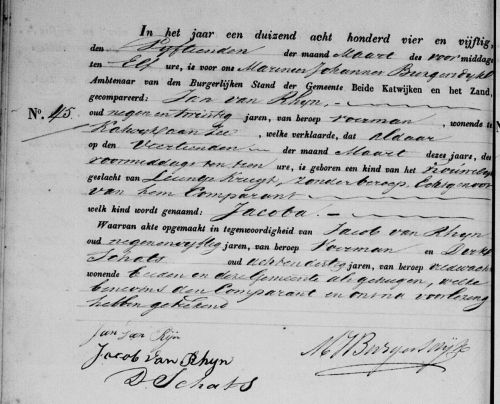 In het jaar een duizend acht honderd vier en vijftig,
den Vyftienden der maand Maart des voor middags
ten Elf ure, is voor ons Marinus Johannes Burgerdyk
Ambtenaar van den Burgerlijken Stand der Gemeente Beide Katwijken en het Zand,
gecompareerd: Jan van Rhyn
No. 45. oud negen en twintig jaren, van beroep voerman, wonende te
Katwyk aan Zee, welke verklaarde, dat aldaar
op den Veertienden der maand Maart dezes jaars, des
voormiddags ten tien ure, is geboren een kind van het vrouwelyk
geslacht van Kruyt, zonder beroep, Echtgenoote
van hem Comparant
welk kind wordt genaamd: Jacoba.
Waarvan akte opgemaakt in tegenwoordigheid van Jacob van Rhyn
oud negenenvyftig jaren, van beroep Voerman en Dirk
Schats oud achtendertig jaren, van beroep
wonende beiden en deze Gemeente als getuigen, welke
benevens den Comparant en ons na voorlezing
hebben getekend
Jan van Rijn
Jacob van Rhyn
D Schats
MJBurgerdijk